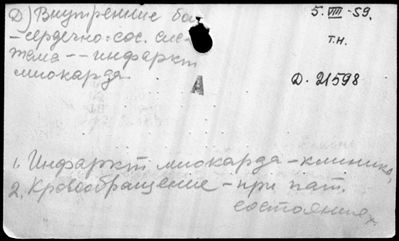 Д) Внутренние бо-
5. VIII - 59.
- сердечно-сос. сис-
т.н.
тема -- инфаркт
миокарда
Д. 21598
А
1. Инфаркт миокарда - клиника,
2. Кровообращение - при пат.
состояниях